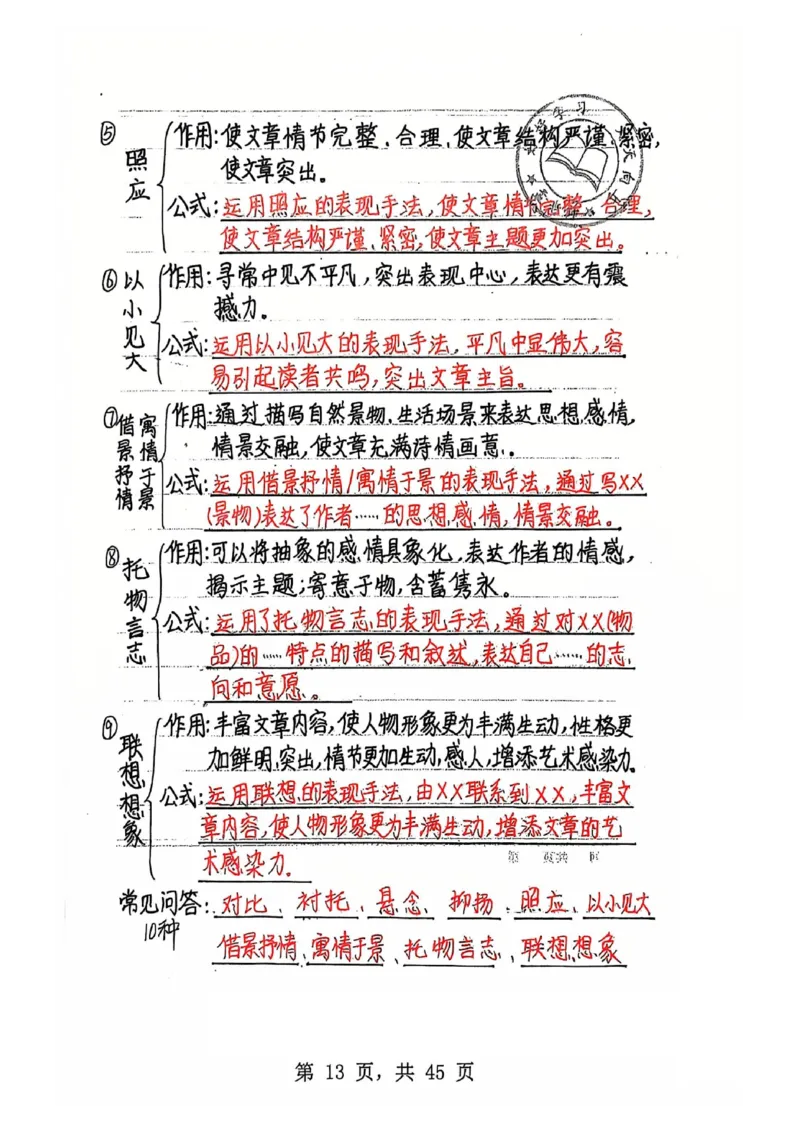 ⑤照应
作用:使文章情节完整、合理、使文章结构严谨、紧密,
使文章突出。
公式:运用照应的表现手法,使文章情节完整、合理,
使文章结构严谨、紧密,使文章主题更加突出。
⑥以小见大
作用:寻常中见不平凡,突出表现中心,表达更有震
撼力。
公式:运用以小见大的表现手法,平凡中显伟大,容
易引起读者共鸣,突出文章主旨。
⑦借景抒情 寓情于景
作用:通过描写自然景物、生活场景来表达思想感情,
情景交融,使文章充满诗情画意。
公式:运用借景抒情/寓情于景的表现手法,通过写XX
(景物)表达了作者……的思想感情,情景交融。
⑧托物言志
作用:可以将抽象的感情具象化,表达作者的情感,
揭示主题;寄意于物,含蓄隽永。
公式:运用了托物言志的表现手法,通过对XX(物
品)的……特点的描写和叙述,表达自己……的志
向和意愿。
⑨联想想象
作用:丰富文章内容,使人物形象更为丰满生动,性格更
加鲜明、突出,情节更加生动、感人,增添艺术感染力。
公式:运用联想的表现手法,由XX联系到XX,丰富文
章内容,使人物形象更为丰满生动,增添文章的艺
术感染力。
常见问答:对比、衬托、悬念、抑扬、照应、以小见大
10种
借景抒情、寓情于景、托物言志、联想想象
第 13 页,共 45 页